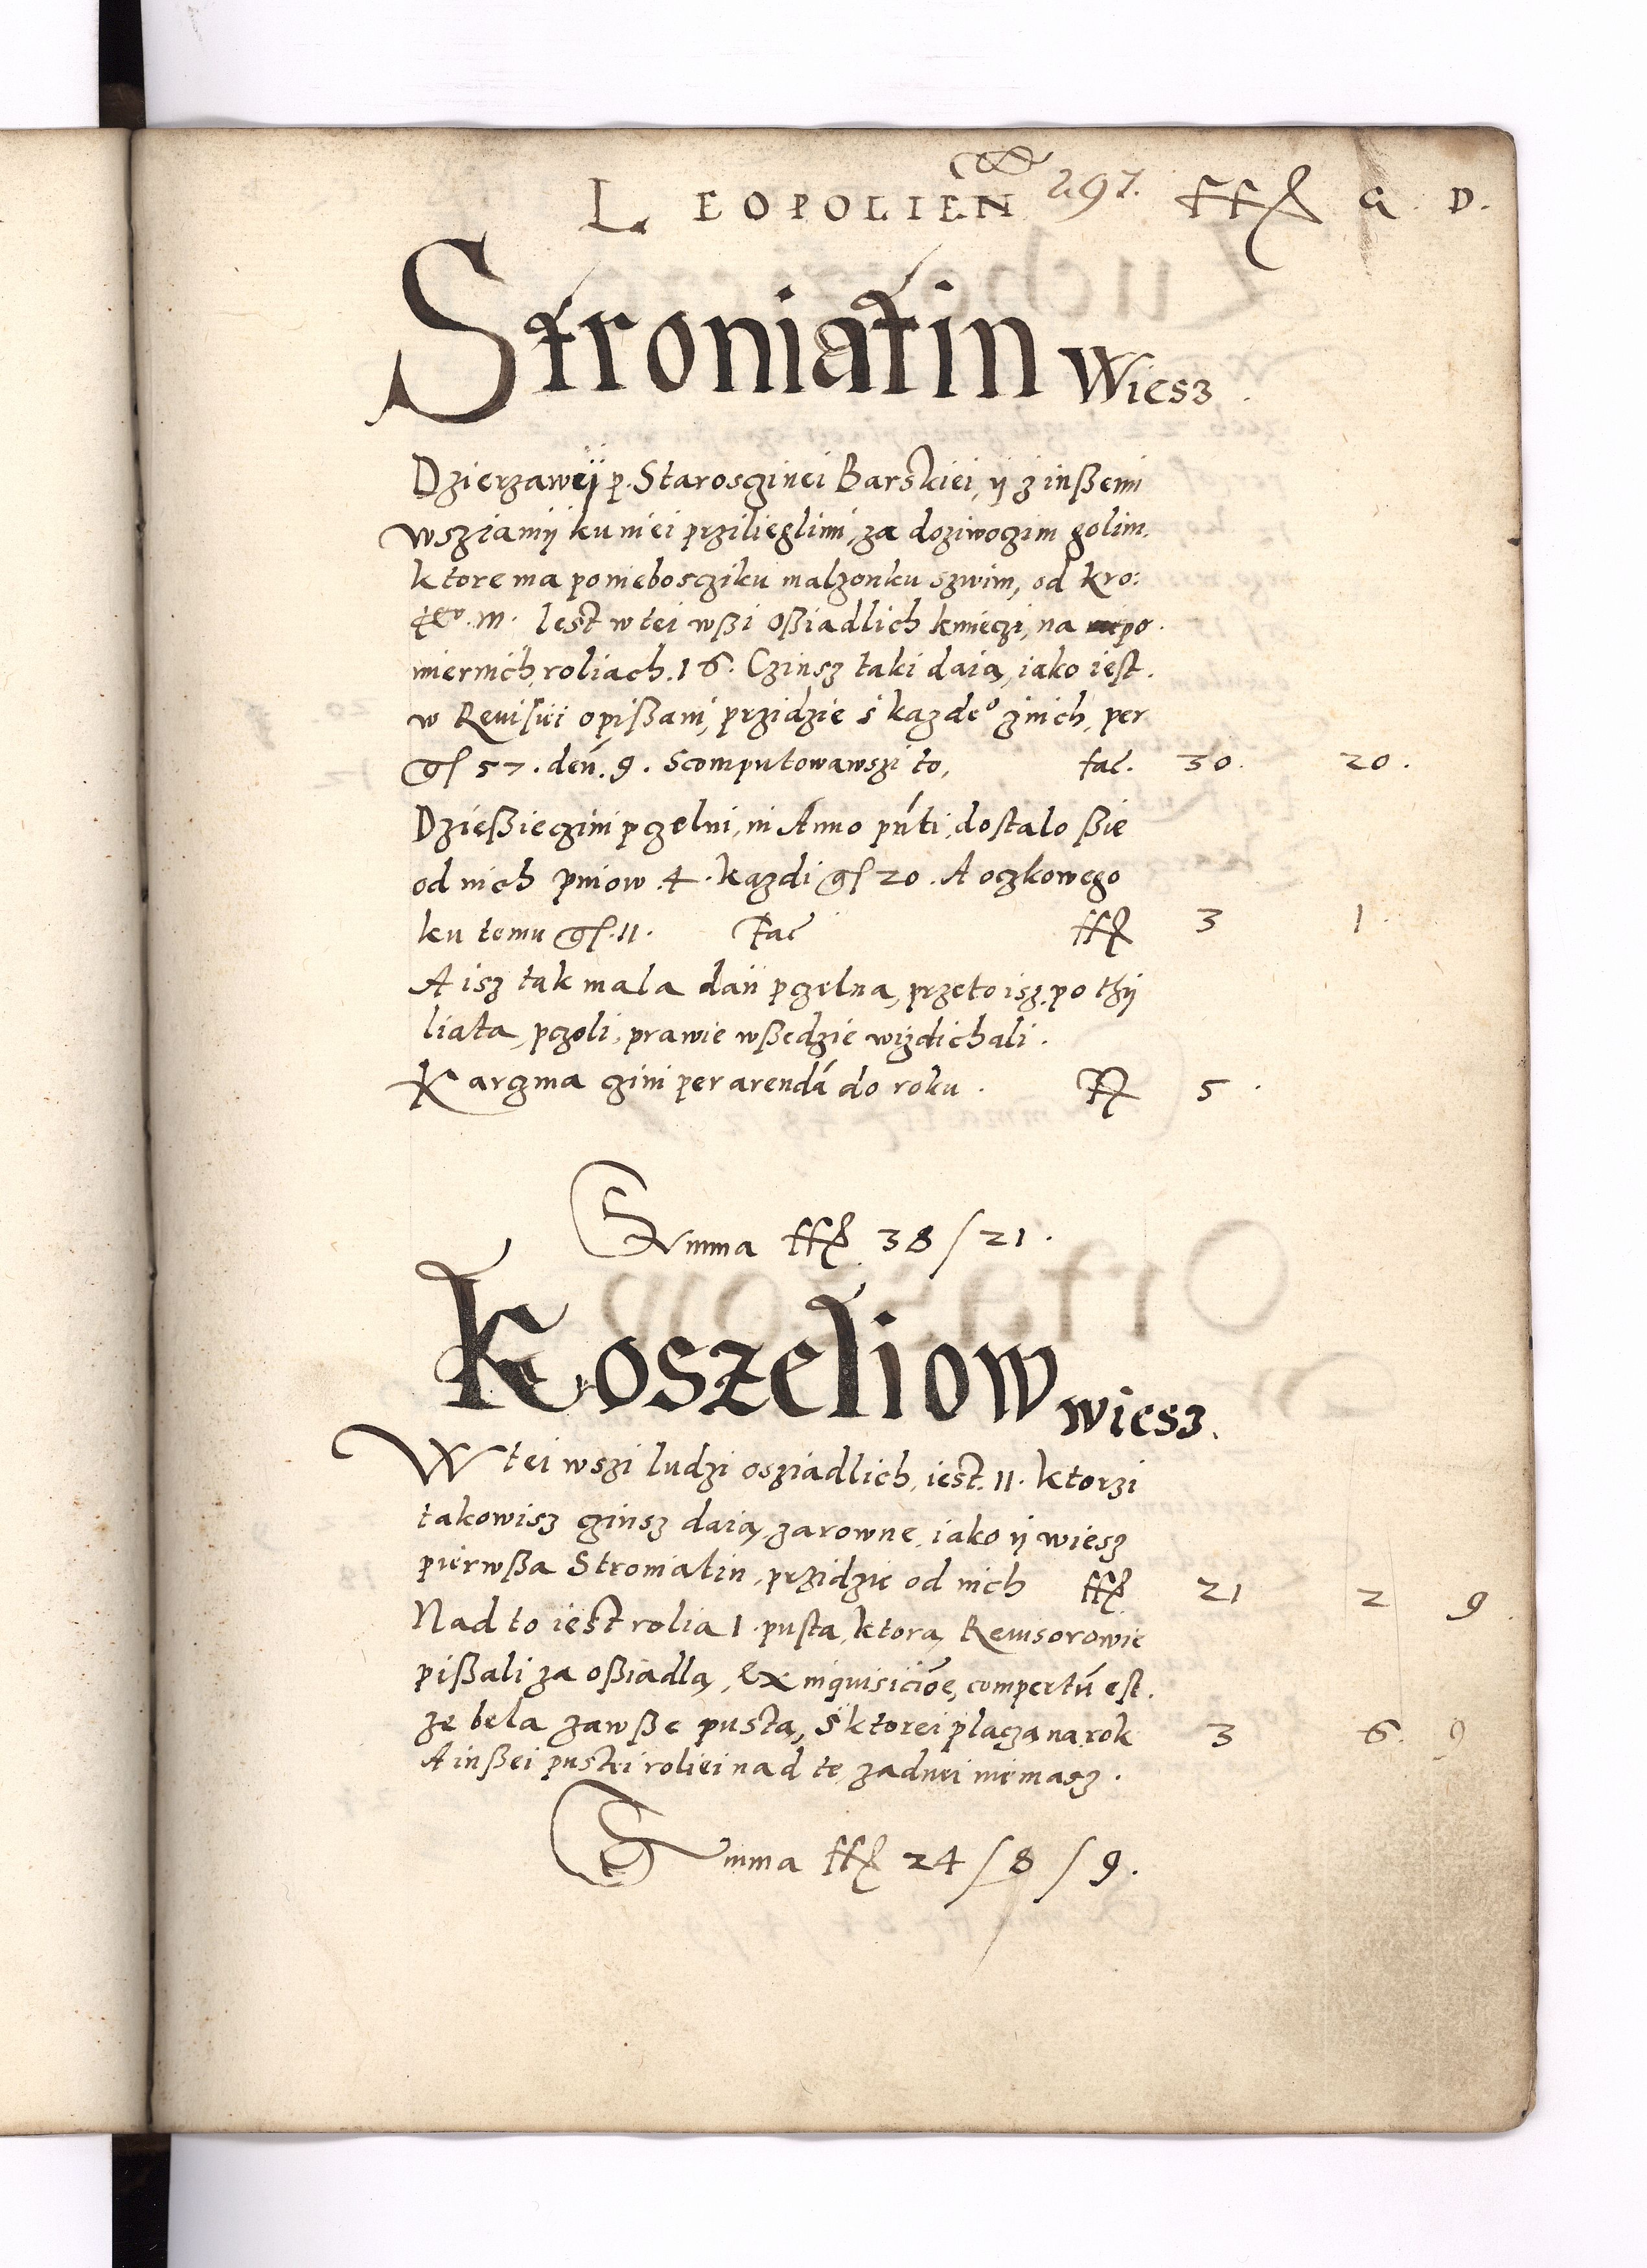 LEOPOLIEN 297. ffl G D.
Stroniatin Wiesz.
Dzierzaweÿ p. Starosczinei Barskiei, ÿ z inßemi
wsziamÿ ku niei przilieglimi, za doziwoczim golim.
ktore ma po nieboscziku malzonku szwim, od kro:
m. Iest w tei wßi oßiadlich kmieczi, na po
miernich roliach. 16. Czinsz taki daią, iako iest.
w Reuisiei opißani, przidzie s kazdeº znich, per
gſ 57. deń. 9. Scomputowawszi to, fac. 30. 20.
Dzießieczini pczelni, in Anno pńti, dostalo ßie
od nich pniow .4. kazdi gſ 20. A oczkowego
ku temu gſ. 11. Fac ffl 3 1
A isz tak mala dań pczelna, przeto isz po thÿ
liata, pczoli, prawie wßedzie wÿzdichali.
Karczma czini per arendą do roku. ffl 5.
Summa ffl 38 / 21.
Koszeliow wiesz.
W tei wszi ludzi osziadlich, iest. 11. ktorzi
takowisz czinsz daią, zarowne, iako ÿ wiesz
pierwßa Stroniatin, przidzie od nich ffl 21 2 9.
Nad to iest rolia 1. pusta, ktorą Reuisorowie
pißali za oßiadlą, Ex inquisicioe, compertu est.
ze bela zawße pusta, s ktorei placza na rok 3 6. 9
A inßei pustei roliei nad te, zadnei niemasz.
Summa ffl 24 / 8 / 9.